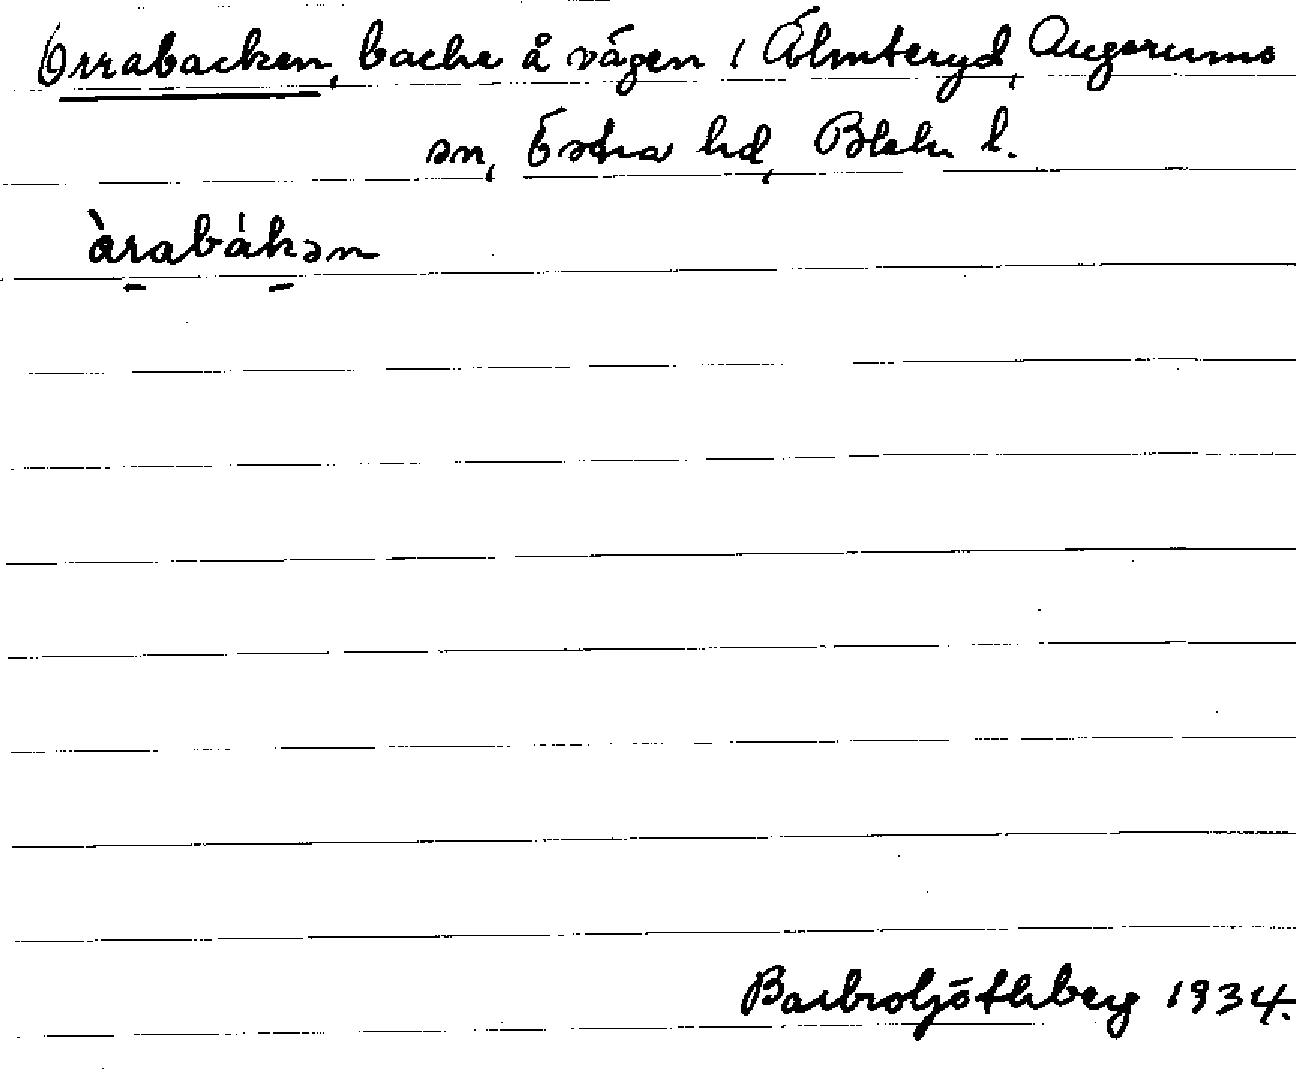 Orrabacken, backe å vägen i Älmteryd, Augerums
sn, Östra hd, Blek. l.
àrabákən
Barbro Götlberg 1934.